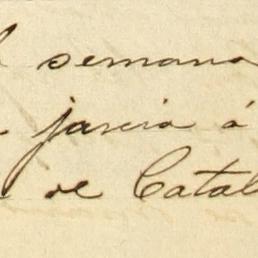 l semana
jarcia á
de Catal